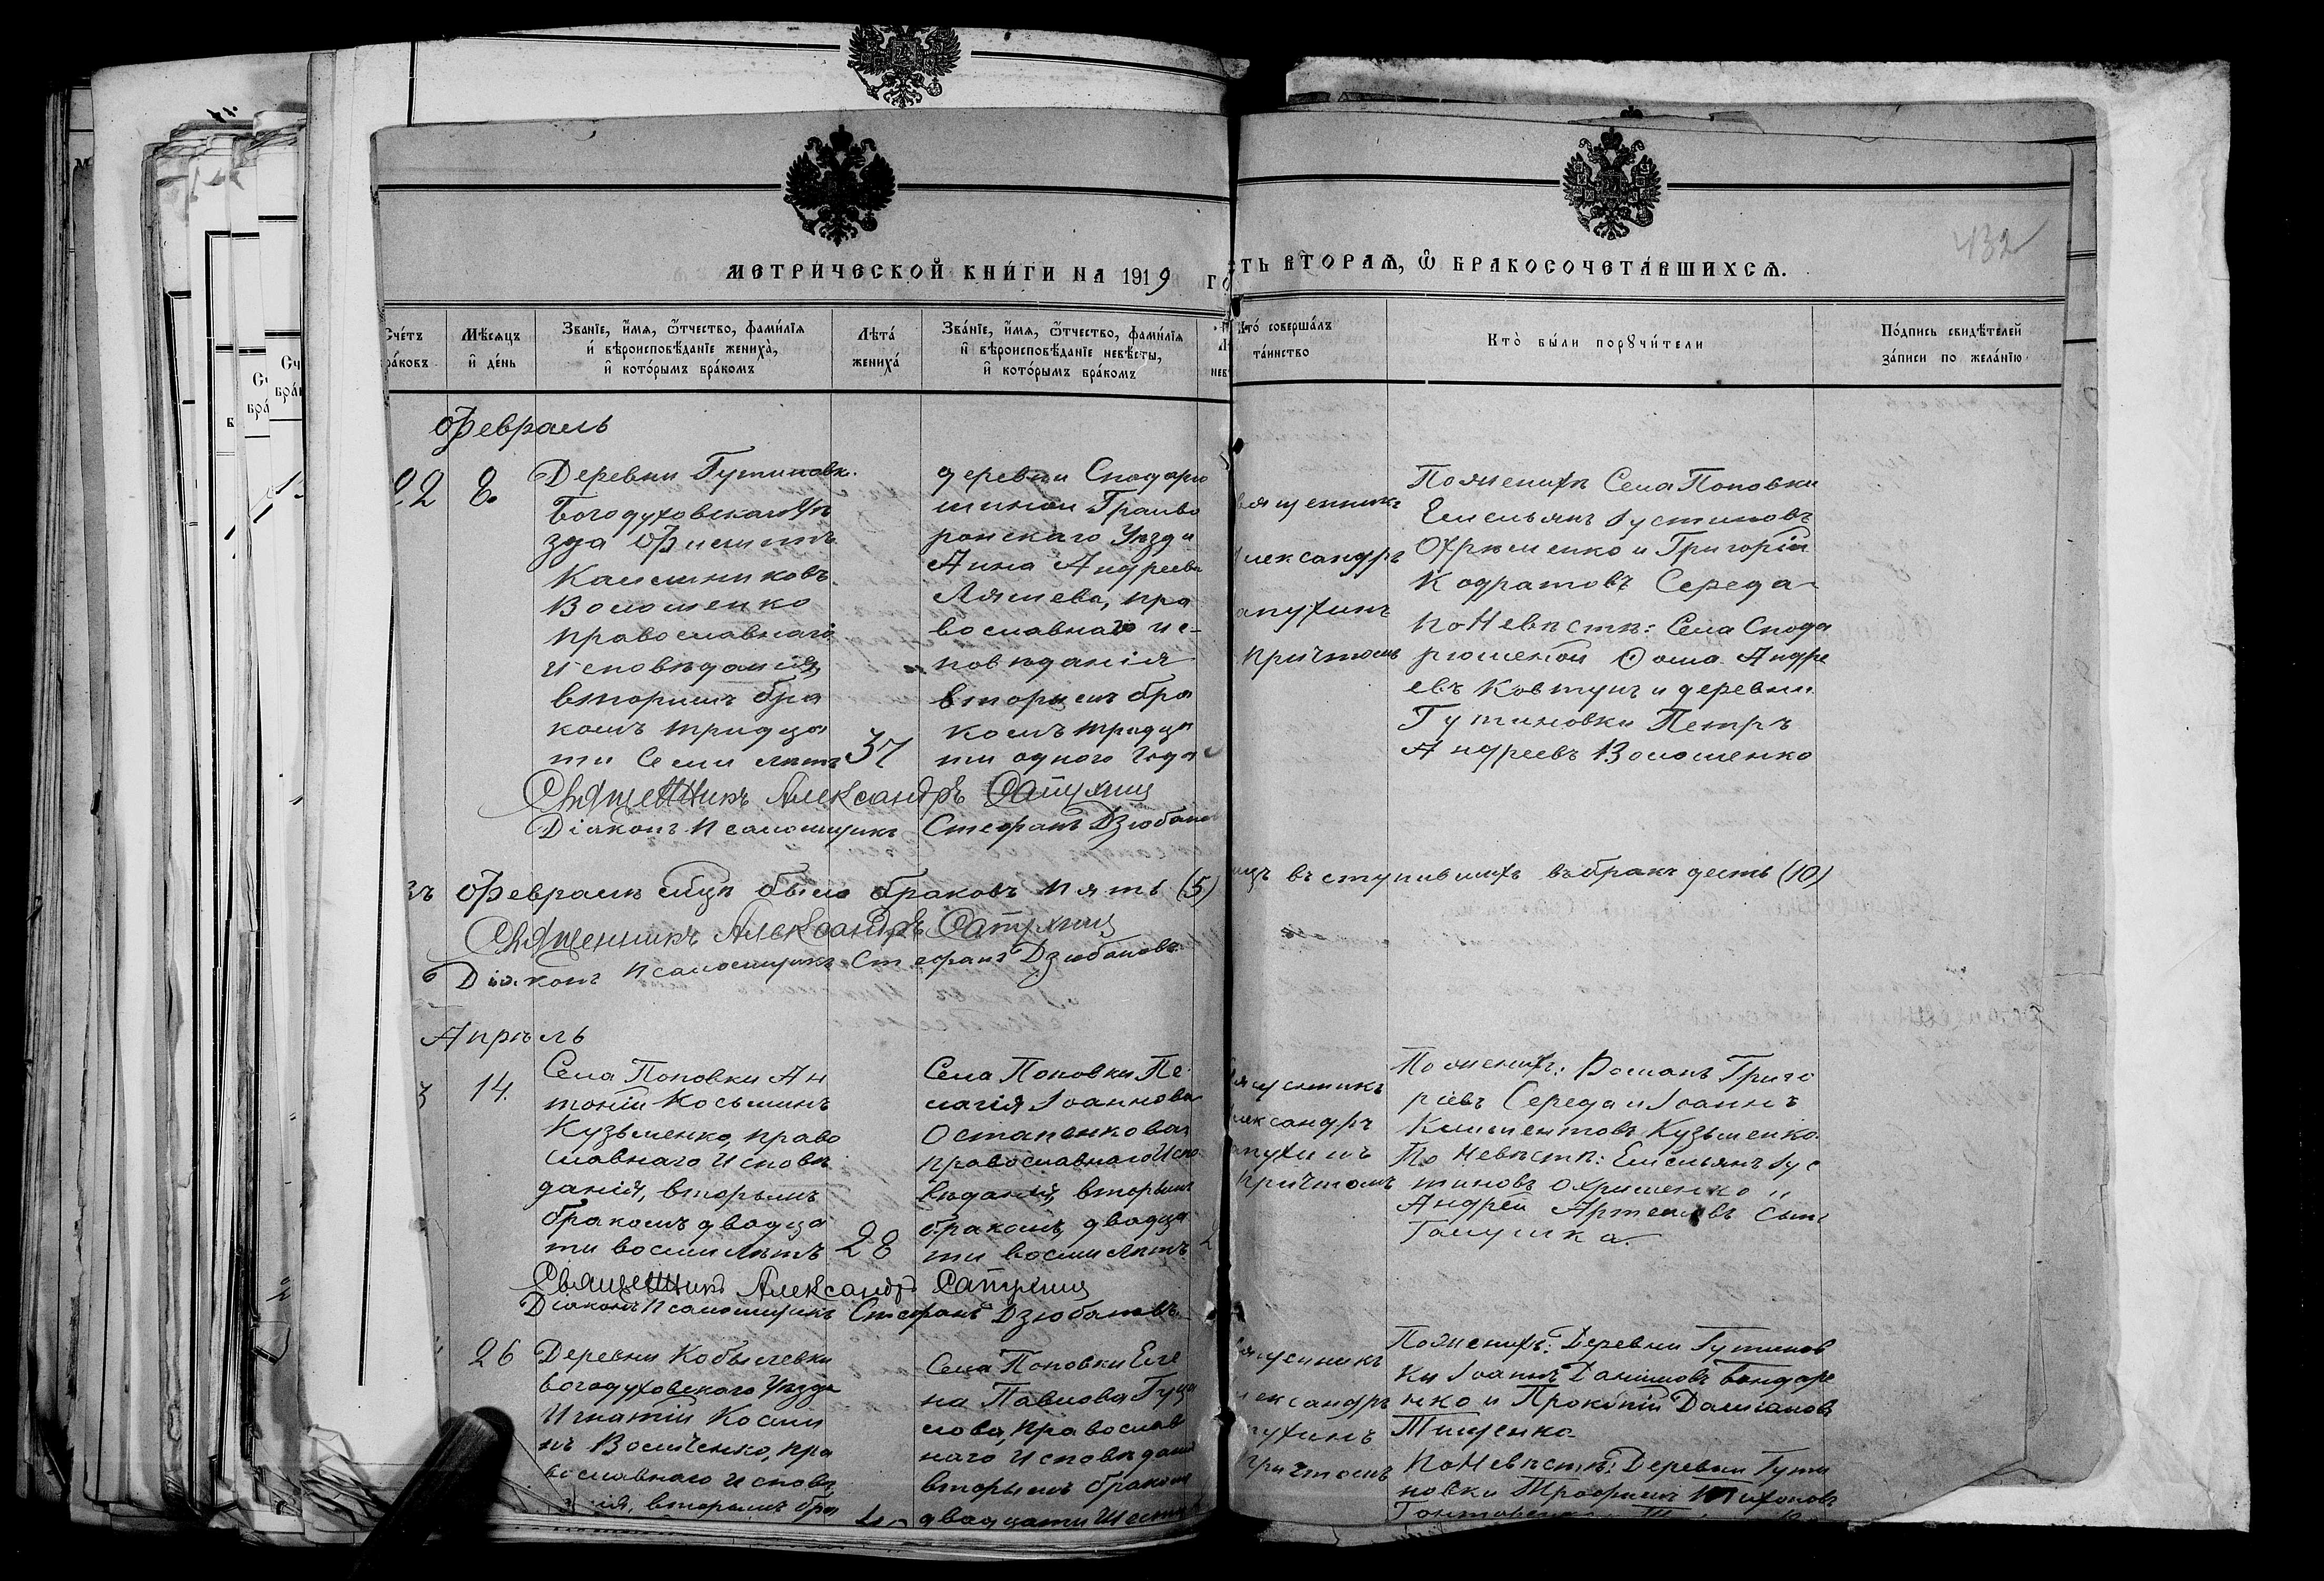 432
МЕТРИЧЕСКОЙ КНИГИ НА 1919 ГО
ТЬ ВТОРАѦ, Ѽ БРАКОСОЧЕТАВШИХСѦ.
Счетъ
раковъ
Мѣсѧцъ
и день
Званїе, имѧ, ѿчество, фамилїѧ
и вѣроисповѣданїе жениха,
и которымъ бракомъ
Лѣта
жениха
Званїе, имѧ, ѿчество, фамилїѧ
и вѣроисповѣданїе невѣсты,
и которымъ бракомъ
Кто совершалъ
таинство
Кто были порꙋчители
Подпись свидѣтелей
записи по желанїю
Февраль
22
8.
Деревни Гутиновк.
Богодуховскаго Уѣ
зда Филиппъ
Калинниковъ
Волошенко
православнаго
исповѣданія
вторимъ бра
комъ тридца
ти семи лѣтъ
37
деревни Сподарю
шиной Грайво
ронскаго Уѣзда
Анна Андреева
Ляшева, пра
вославнаго ис-
повѣданія
вторымъ бра
комъ тридца
ти одного года
вященникъ
лександръ
апухинъ
причтомъ
По женихѣ Села Поповки
Емельянъ Іустиновъ
Охрименко и Григорій
Кодратовъ Середа
По Невѣстѣ: Села Спода
рюшеной Ѳома Андре
евъ Ковтунъ и деревни
Гутиновки Петръ
Андреевъ Волошенко
Священникъ Александръ Сапухинъ
Діаконъ Псаломщикъ Стефанъ Дзюбановъ
въ Февралѣ м҃цѣ было браковъ пять (5)
ицъ въступившихъ въ бракъ десть (10)
Священникъ Александръ Сапухинъ
Діаконъ Псаломщикъ Стефанъ Дзюбановъ
Апрѣль
3
14.
Села Поповки Ан
тоній Косьминъ
Кузьменко, право
славнаго исповѣ
данія, вторымъ
бракомъ двадца
ти восми лѣтъ
28
Села Поповки Пе
лагія Іоаннова
Остапенковая
православнаго испо
вѣданія, вторымъ
бракомъ двадца
ти восми лѣтъ
2
ященникъ
лександръ
апухинъ
причтомъ
По женихѣ: Романъ Григо
ріевъ Середа и Іоаннъ
Климентовъ Кузьменко.
По Невѣстѣ: Емельянъ Іус
тиновъ Охрименко и
Андрей Артемовъ сынъ
Галушка.
Священникъ Александръ Сапухинъ
Діаконъ Псаломщикъ Стефанъ Дзюбановъ
26
Деревни Кобылевки
Богодуховскаго Уѣзда
Игнатій Косми
нъ Воличенко, пра
вославнаго исповѣ
нія, вторымъ бра
Села Поповки Еле
на Павлова
лова, православ
наго исповѣданія
вторымъ бракомъ
двадцати шести
ященникъ
лександръ
пухинъ
причтомъ
По женихѣ: Деревни Гутинов
ки Іоаннъ Даниловъ Бондаре
нко и Прокопій Даміановъ
Тищенко
По Невѣстѣ: Деревни Гути
новки Трофимъ Тихоновъ